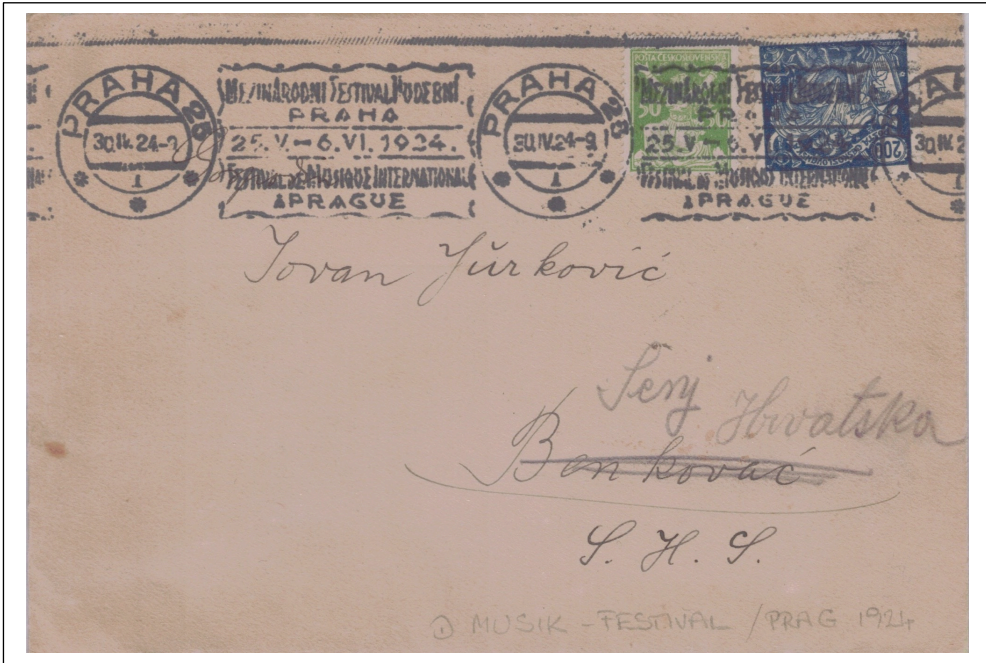 PRAHA 25
30.IV.24-9
1
MEZINÁRODNÍ FESTIVAL MODERNÍ
PRAHA
25. V. – 6. VI. 1924.
FESTIVAL DE MUSIQUE INTERNATIONAL
À PRAGUE
PRAHA 25
30.IV.24-9
1
POŠTA ČESKOSLOVENSKÁ
50
200
MEZINÁRODNÍ FESTIVAL MODERNÍ
PRAHA
25. V. – 6. V
FESTIVAL DE MUSIQUE INTERNATIONAL
À PRAGUE
30.IV.2
1
Jovan Jurković
Senj Hrvatska
Benkovać
S. H. S.
① MUSIK - FESTIVAL / PRAG 1924